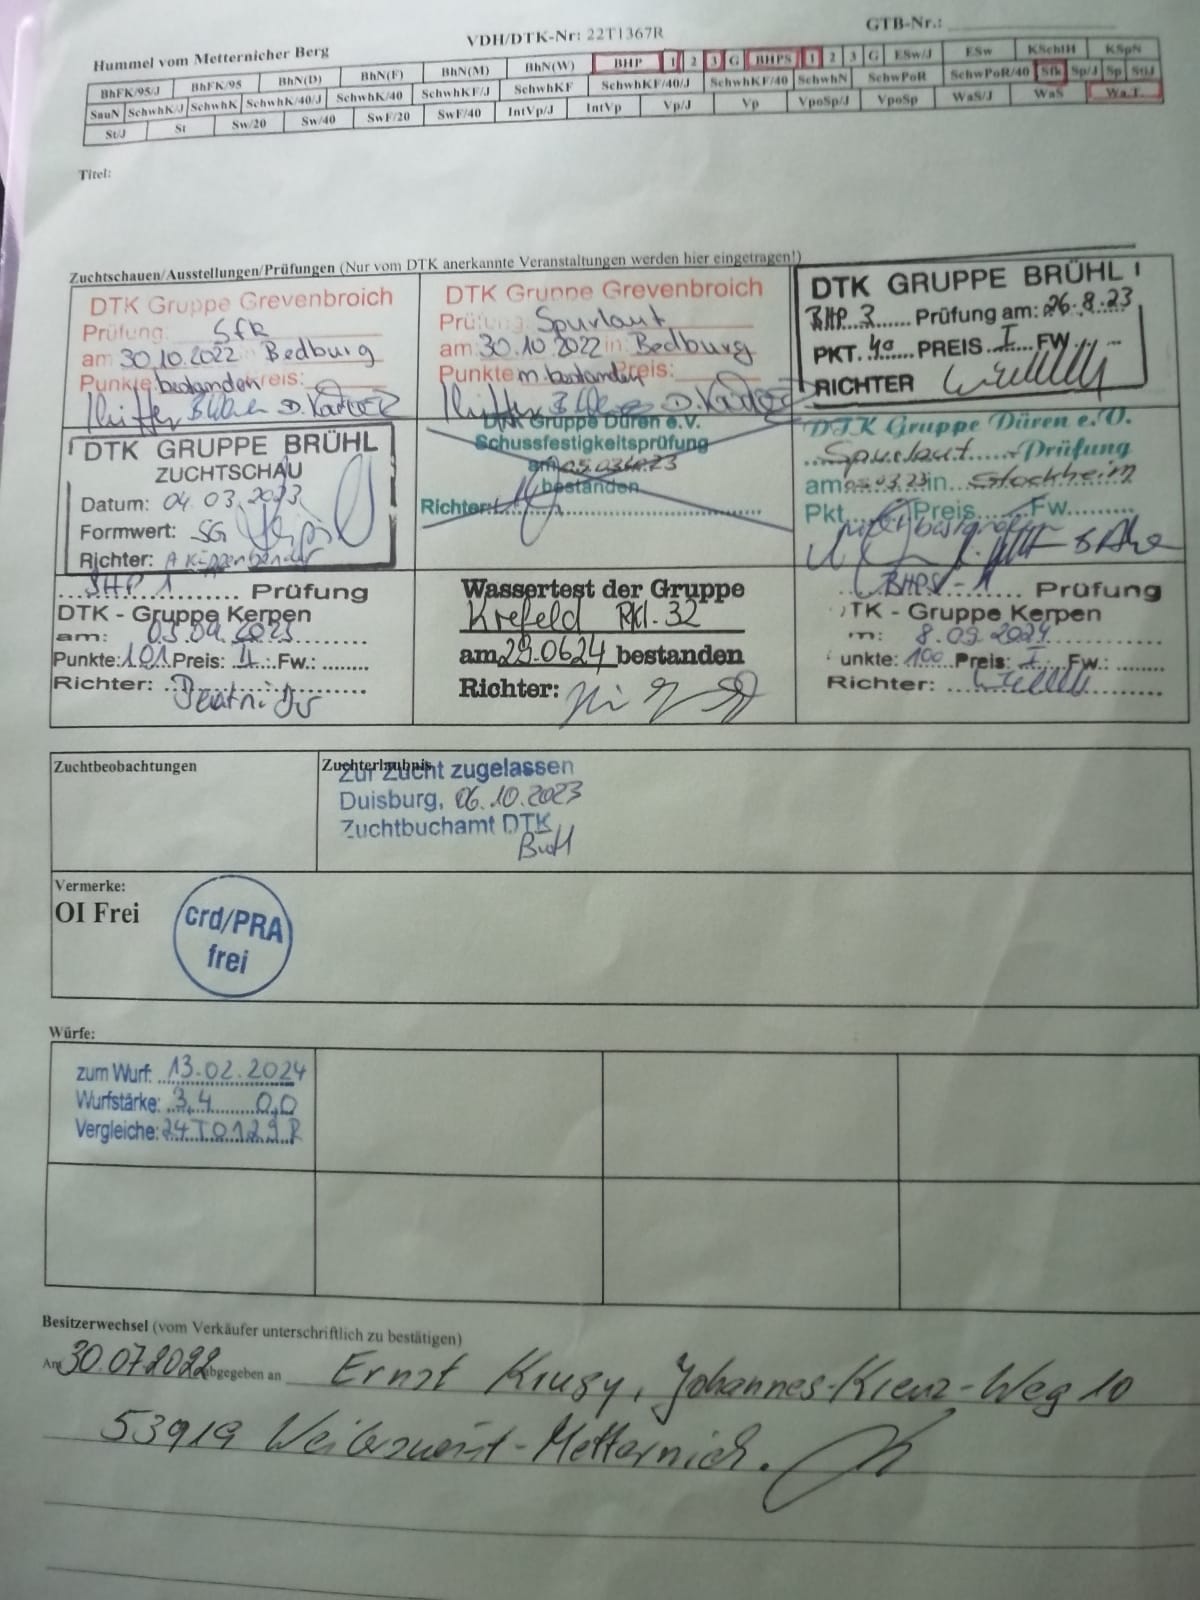 Hummel vom Metternicher Berg VDH/DTK-Nr: 22T1367R GTB-Nr.:
BhFK/95/J BhFK/95 BhN(D) BhN(F) BhN(M) BhN(W) BHP 1 2 3 G BHPS 1 2 3 G ESw/J ESw KSchlH KSpN
SauN SchwhK/J SchwhK SchwhK/40/J SchwhK/40 SchwhKF/J SchwhKF SchwhKF/40/J SchwhKF/40 SchwhN SchwPoR SchwPoR/40 Sfk Sp/J Sp StiJ
St/J St Sw/20 Sw/40 SwF/20 SwF/40 IntVp/J IntVp Vp/J Vp VpoSp/J VpoSp WaS/J WaS Wa.T.
Titel:
Zuchtschauen/Ausstellungen/Prüfungen (Nur vom DTK anerkannte Veranstaltungen werden hier eingetragen!)
DTK Gruppe Grevenbroich
Prüfung SfK
am 30.10.2022 in Bedburg
Punkte bestanden Preis:
DTK Gruppe Grevenbroich
Prüfung Spurlaut
am 30.10.2022 in Bedburg
Punkte n. bestanden Preis:
DTK GRUPPE BRÜHL
BHP 3 Prüfung am: 26.8.23
PKT. 40 PREIS I FW
RICHTER
DTK GRUPPE BRÜHL
ZUCHTSCHAU
Datum: 04.03.2023
Formwert: SG
Richter: A Küppenbender
DTK Gruppe Düren e.V.
Schussfestigkeitsprüfung
am 05.03.23
bestanden
Richter:
DTK Gruppe Düren e.V.
Spurlaut Prüfung
am 05.03.23 in Stockheim
Pkt. Preis Fw.
BHP 1 Prüfung
DTK - Gruppe Kerpen
am: 03.09.2023
Punkte: 101 Preis: 1 Fw.:
Richter:
Wassertest der Gruppe
Krefeld RKl. 32
am 29.06.24 bestanden
Richter:
BHPS - 1 Prüfung
TK - Gruppe Kerpen
m: 8.09.2024
unkte: 100 Preis: I Fw.:
Richter:
Zuchtbeobachtungen
Zuchterlaubnis
Zur Zucht zugelassen
Duisburg, 06.10.2023
Zuchtbuchamt DTK
Vermerke:
OI Frei
crd/PRA
frei
Würfe:
zum Wurf: 13.02.2024
Wurfstärke: 3,4 0,0
Vergleiche: 24T0129R
Besitzerwechsel (vom Verkäufer unterschriftlich zu bestätigen)
Am 30.07.2022 abgegeben an Ernst Krusy, Johannes-Kreuz-Weg 10
53919 Weilerswist-Metternich.